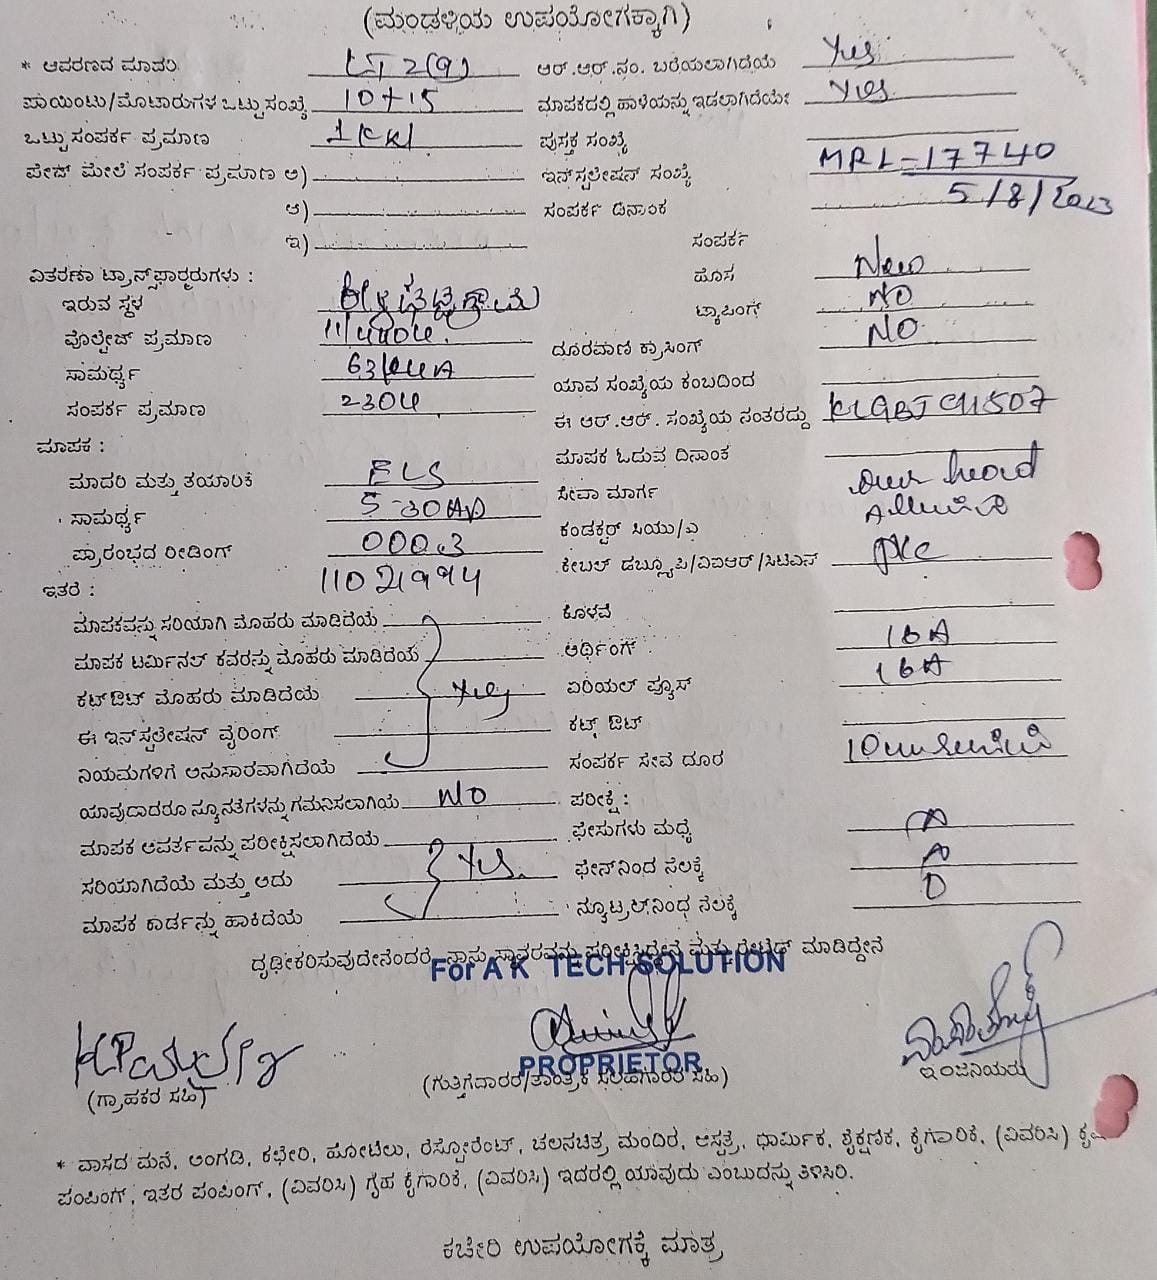 (ಮಂಡಳಿಯ ಉಪಯೋಗಕ್ಕಾಗಿ)
* ಆವರಣದ ಮಾದರಿ LT 2(a) ಆರ್.ಆರ್.ನಂ. ಬರೆಯಲಾಗಿದೆಯೇ Yes
ಪಾಯಿಂಟು/ಮೊಟಾರುಗಳ ಒಟ್ಟು ಸಂಖ್ಯೆ 10+15 ಮಾಪಕದಲ್ಲಿ ಹಾಳೆಯನ್ನು ಇಡಲಾಗಿದೆಯೇ Yes
ಒಟ್ಟು ಸಂಪರ್ಕ ಪ್ರಮಾಣ 1 ಪುಸ್ತಕ ಸಂಖ್ಯೆ
ಪೇಜ್ ಮೇಲೆ ಸಂಪರ್ಕ ಪ್ರಮಾಣ ಅ) ಇನ್‌ಸ್ಟಲೇಷನ್ ಸಂಖ್ಯೆ MRL=17740
ಆ) ಸಂಪರ್ಕ ದಿನಾಂಕ 5/8/2023
ಇ) ಸಂಪರ್ಕ
ವಿತರಣಾ ಟ್ರಾನ್ಸ್‌ಫಾರ್ಮರುಗಳು : ಹೊಸ New
ಇರುವ ಸ್ಥಳ ಟ್ಯಾಪಿಂಗ್ NO
ವೋಲ್ಟೇಜ್ ಪ್ರಮಾಣ ದೂರವಾಣಿ ಕ್ರಾಸಿಂಗ್ NO
ಸಾಮರ್ಥ್ಯ 63 ಯಾವ ಸಂಖ್ಯೆಯ ಕಂಬದಿಂದ
ಸಂಪರ್ಕ ಪ್ರಮಾಣ 230 ಈ ಆರ್.ಆರ್. ಸಂಖ್ಯೆಯ ನಂತರದ್ದು
ಮಾಪಕ : ಮಾಪಕ ಓದುವ ದಿನಾಂಕ
ಮಾದರಿ ಮತ್ತು ತಯಾರಿಕೆ ELS ಸೇವಾ ಮಾರ್ಗ over head
ಸಾಮರ್ಥ್ಯ 5-30 ಕಂಡಕ್ಟರ್ ಸಿಯು/ಎ
ಪ್ರಾರಂಭದ ರೀಡಿಂಗ್ 000.3 ಕೇಬಲ್ ಡಬ್ಲ್ಯೂಪಿ/ವಿಐಆರ್/ಸಿಟಿಎಸ್ PVC
ಇತರೆ : 11021994
ಮಾಪಕವನ್ನು ಸರಿಯಾಗಿ ಮೊಹರು ಮಾಡಿದೆಯೆ ಕೊಳವೆ
ಮಾಪಕ ಟರ್ಮಿನಲ್ ಕವರನ್ನು ಮೊಹರು ಮಾಡಿದೆಯೆ ಅರ್ಥಿಂಗ್ 16A
ಕಟ್‌ಔಟ್ ಮೊಹರು ಮಾಡಿದೆಯೆ Yes ಏರಿಯಲ್ ಫ್ಯೂಸ್ 16A
ಈ ಇನ್‌ಸ್ಟಲೇಷನ್ ವೈರಿಂಗ್ ಕಟ್ಟ್ ಔಟ್
ನಿಯಮಗಳಿಗೆ ಅನುಸಾರವಾಗಿದೆಯೆ ಸಂಪರ್ಕ ಸೇವೆ ದೂರ
ಯಾವುದಾದರೂ ನ್ಯೂನತೆಗಳನ್ನು ಗಮನಿಸಲಾಗಿಯೆ NO ಪರೀಕ್ಷೆ :
ಮಾಪಕ ಆವರ್ತವನ್ನು ಪರೀಕ್ಷಿಸಲಾಗಿದೆಯೆ ಫೇಸುಗಳು ಮಧ್ಯೆ
ಸರಿಯಾಗಿದೆಯೆ ಮತ್ತು ಅದು Yes. ಫೇಸ್‌ನಿಂದ ನೆಲಕ್ಕೆ
ಮಾಪಕ ಕಾರ್ಡನ್ನು ಹಾಕಿದೆಯೆ ನ್ಯೂಟ್ರಲ್‌ನಿಂಧ ನೆಲಕ್ಕೆ
ದೃಢೀಕರಿಸುವುದೇನೆಂದರೆ ನಾನು ಸ್ಥಾವರವನ್ನು ಪರೀಕ್ಷಿಸಿದ್ದೇನೆ ಮತ್ತು ಮಾಡಿದ್ದೇನೆ
For A K TECH SOLUTION
PROPRIETOR
(ಗ್ರಾಹಕರ ಸಹಿ) (ಗುತ್ತಿಗೆದಾರರ/ತಾಂತ್ರಿಕ ಸಲಹಗಾರರ ಸಹಿ) ಇಂಜಿನಿಯರು
* ವಾಸದ ಮನೆ, ಅಂಗಡಿ, ಕಛೇರಿ, ಹೋಟೆಲು, ರೆಸ್ಟೋರೆಂಟ್, ಚಲನಚಿತ್ರ ಮಂದಿರ, ಆಸ್ಪತ್ರೆ, ಧಾರ್ಮಿಕ, ಶೈಕ್ಷಣಿಕ, ಕೈಗಾರಿಕೆ, (ವಿವರಿಸಿ)
ಪಂಪಿಂಗ್, ಇತರ ಪಂಪಿಂಗ್, (ವಿವರಿಸಿ) ಗೃಹ ಕೈಗಾರಿಕೆ, (ವಿವರಿಸಿ) ಇದರಲ್ಲಿ ಯಾವುದು ಎಂಬುದನ್ನು ತಿಳಿಸಿರಿ.
ಕಚೇರಿ ಉಪಯೋಗಕ್ಕೆ ಮಾತ್ರ